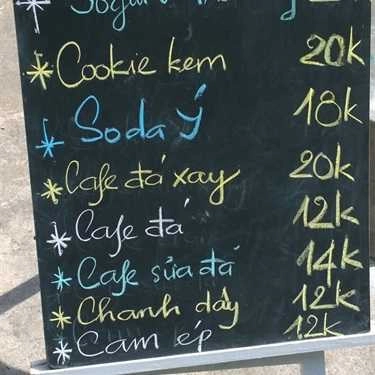 Cookie kem 20K
Soda Ý 18K
Cafe đá xay 20K
Cafe đá 12K
Cafe sữa đá 14K
Chanh dây 12K
Cam ép 12K